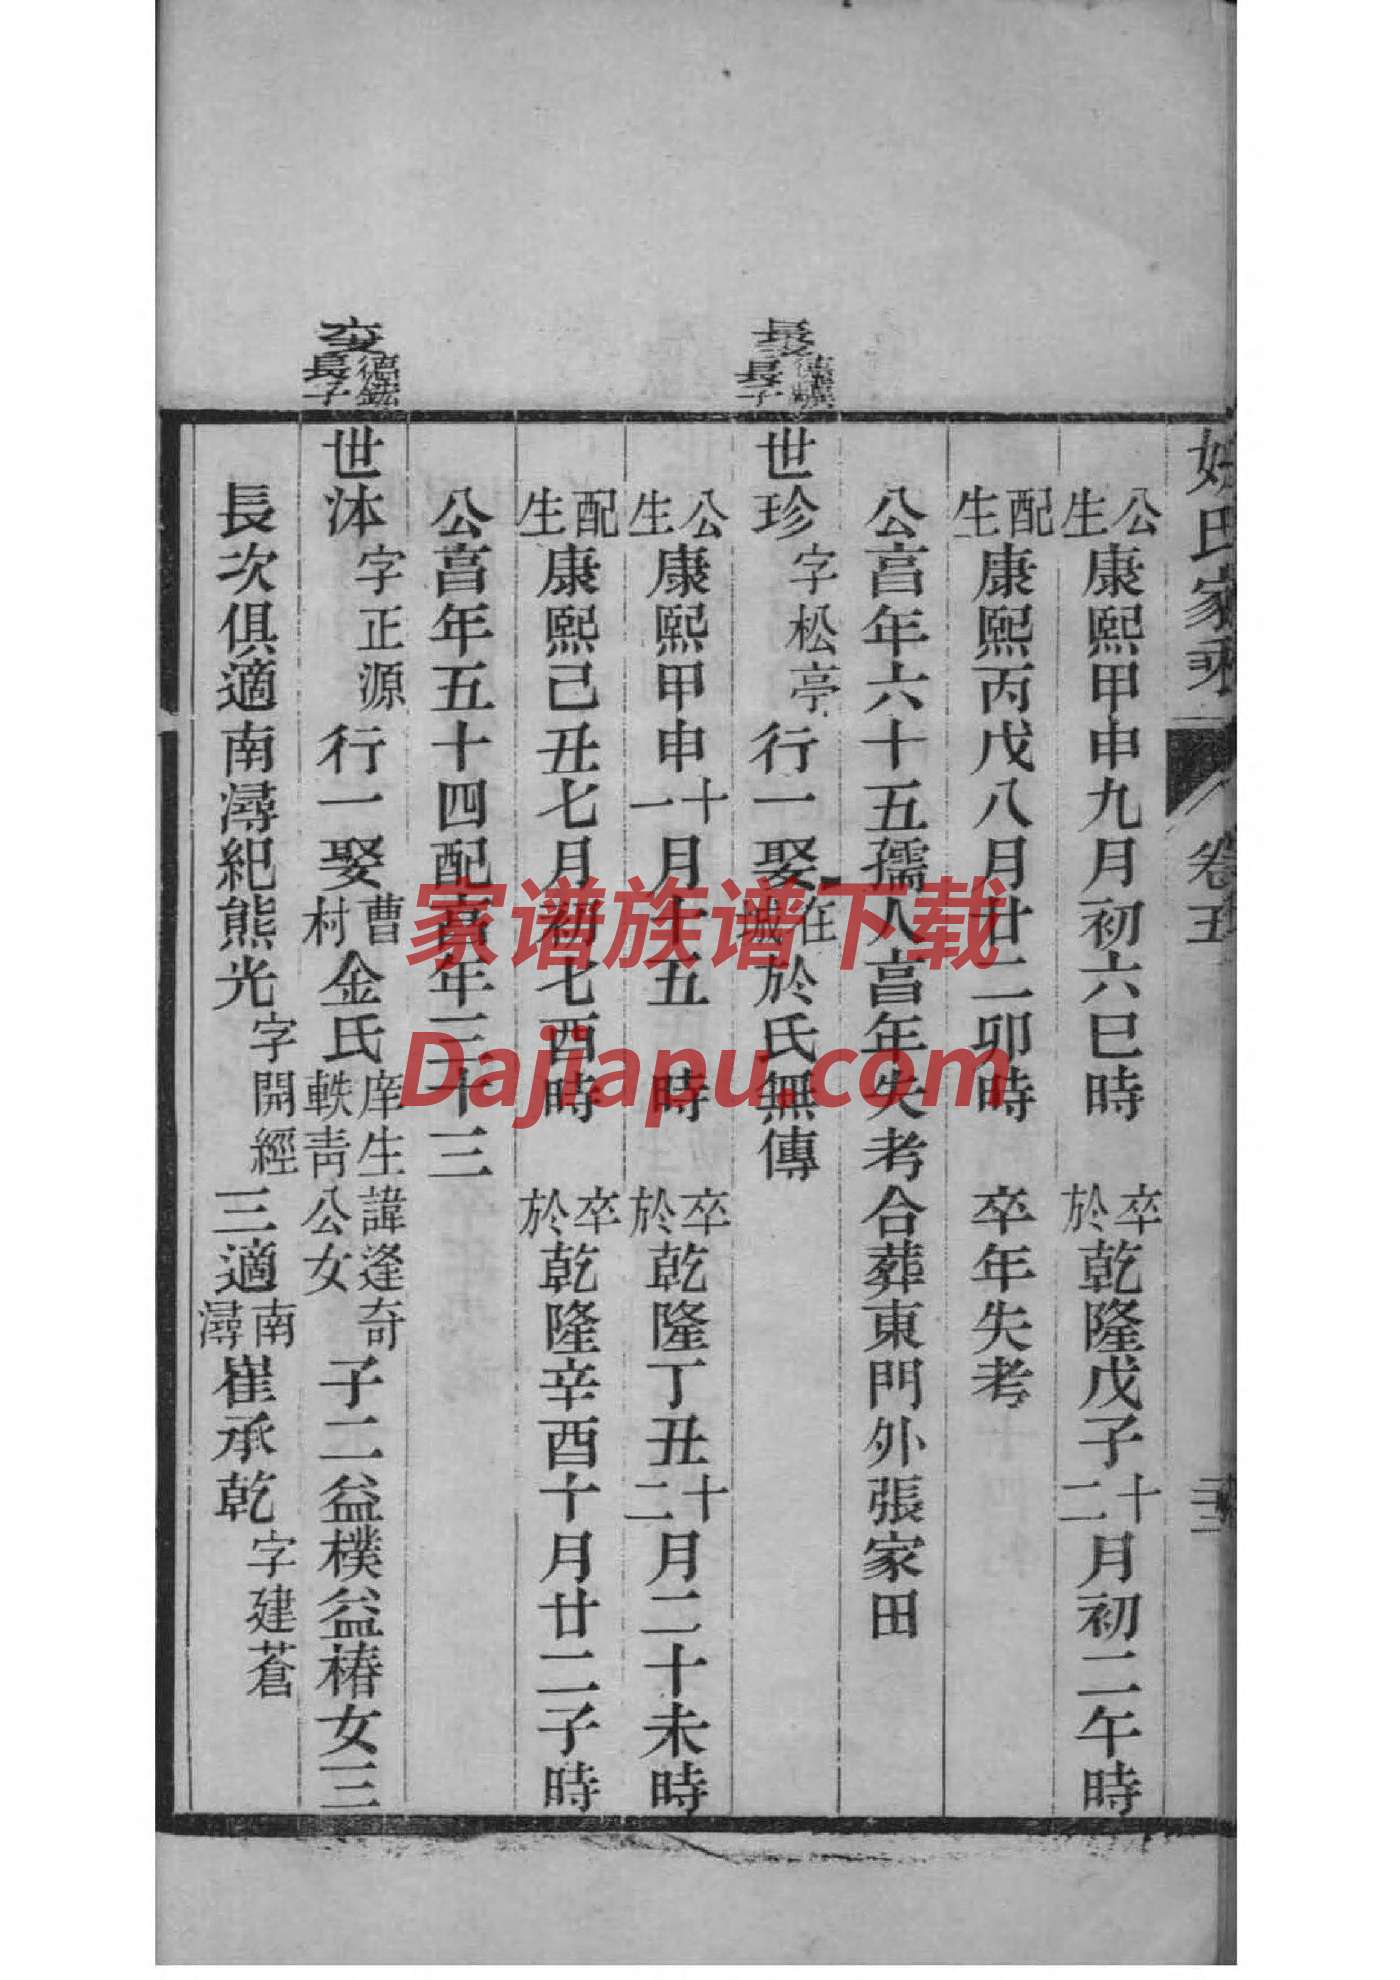 公生康熙甲申九月初六巳時 卒於乾隆戊子十二月初二午時
配生康熙丙戌八月廿二卯時 卒年失考
公亯年六十五孺人亯年失考合葬東門外張家田
長長子
世珍字松亭行一娶在城於氏無傳
公生康熙甲申十一月十五 時 卒於乾隆丁丑十二月二十未時
配生康熙己丑七月初七酉時 卒於乾隆辛酉十月廿二子時
公亯年五十四配亯年三十三
德長子
世沐字正源行一娶曹村金氏庠生諱逢奇軼靑公女子二益樸益椿女三
長次俱適南潯紀熊光字開經三適南潯崔承乾字建蒼
氏家乘
卷五
家谱族谱下载
Dajiapu.com